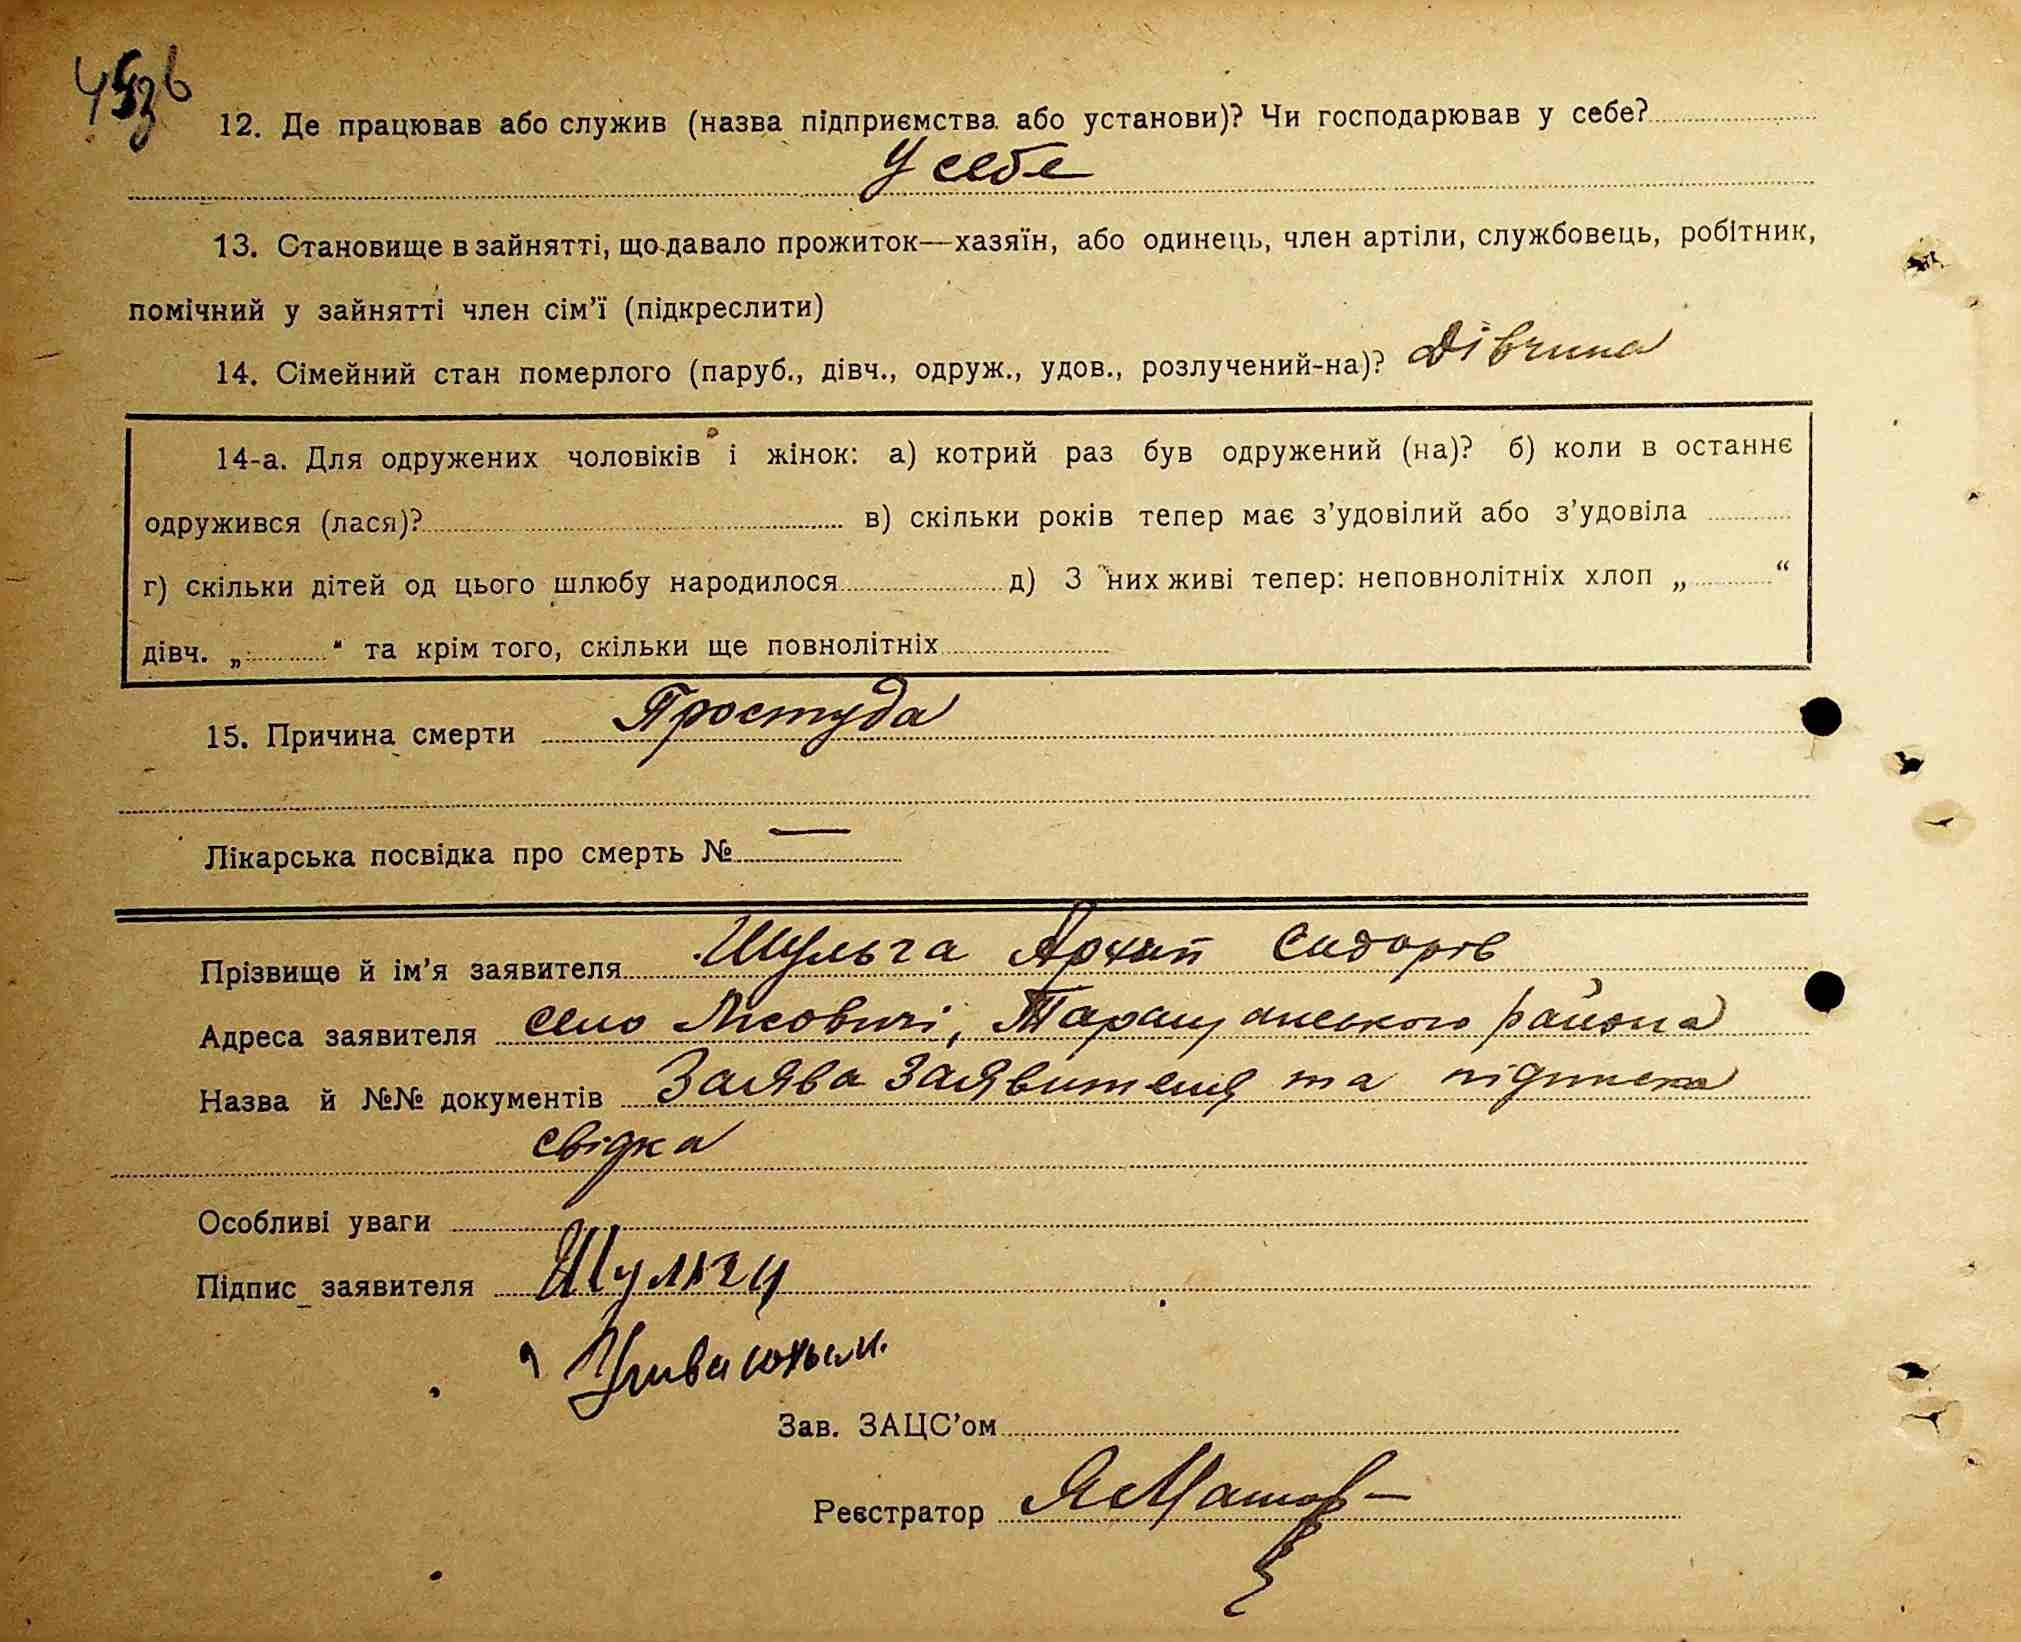 12. Де працював або служив (назва підприємства або установи)? Чи господарював у себе?
У себе
13. Становище в зайнятті, що давало прожиток—хазяїн, або одинець, член артіли, службовець, робітник,
помічний у зайнятті член сім'ї (підкреслити)
14. Сімейний стан померлого (паруб., дівч., одруж., удов., розлучений-на)? Дівчина
14-а. Для одружених чоловіків і жінок: а) котрий раз був одружений (на)? б) коли в останнє
одружився (лася)? в) скільки років тепер має з'удовілий або з'удовіла
г) скільки дітей од цього шлюбу народилося д) З них живі тепер: неповнолітніх хлоп „ “
дівч. „ “ та крім того, скільки ще повнолітніх
15. Причина смерти Простуда
Лікарська посвідка про смерть № —
Прізвище й ім'я заявителя Шульга Архип Сидорів
Адреса заявителя село Лісовичі, Таращанського района
Назва й №№ документів Заява заявителя та підписка
свідка
Особливі уваги
Підпис заявителя Шульга
Зав. ЗАЦС'ом
Реєстратор